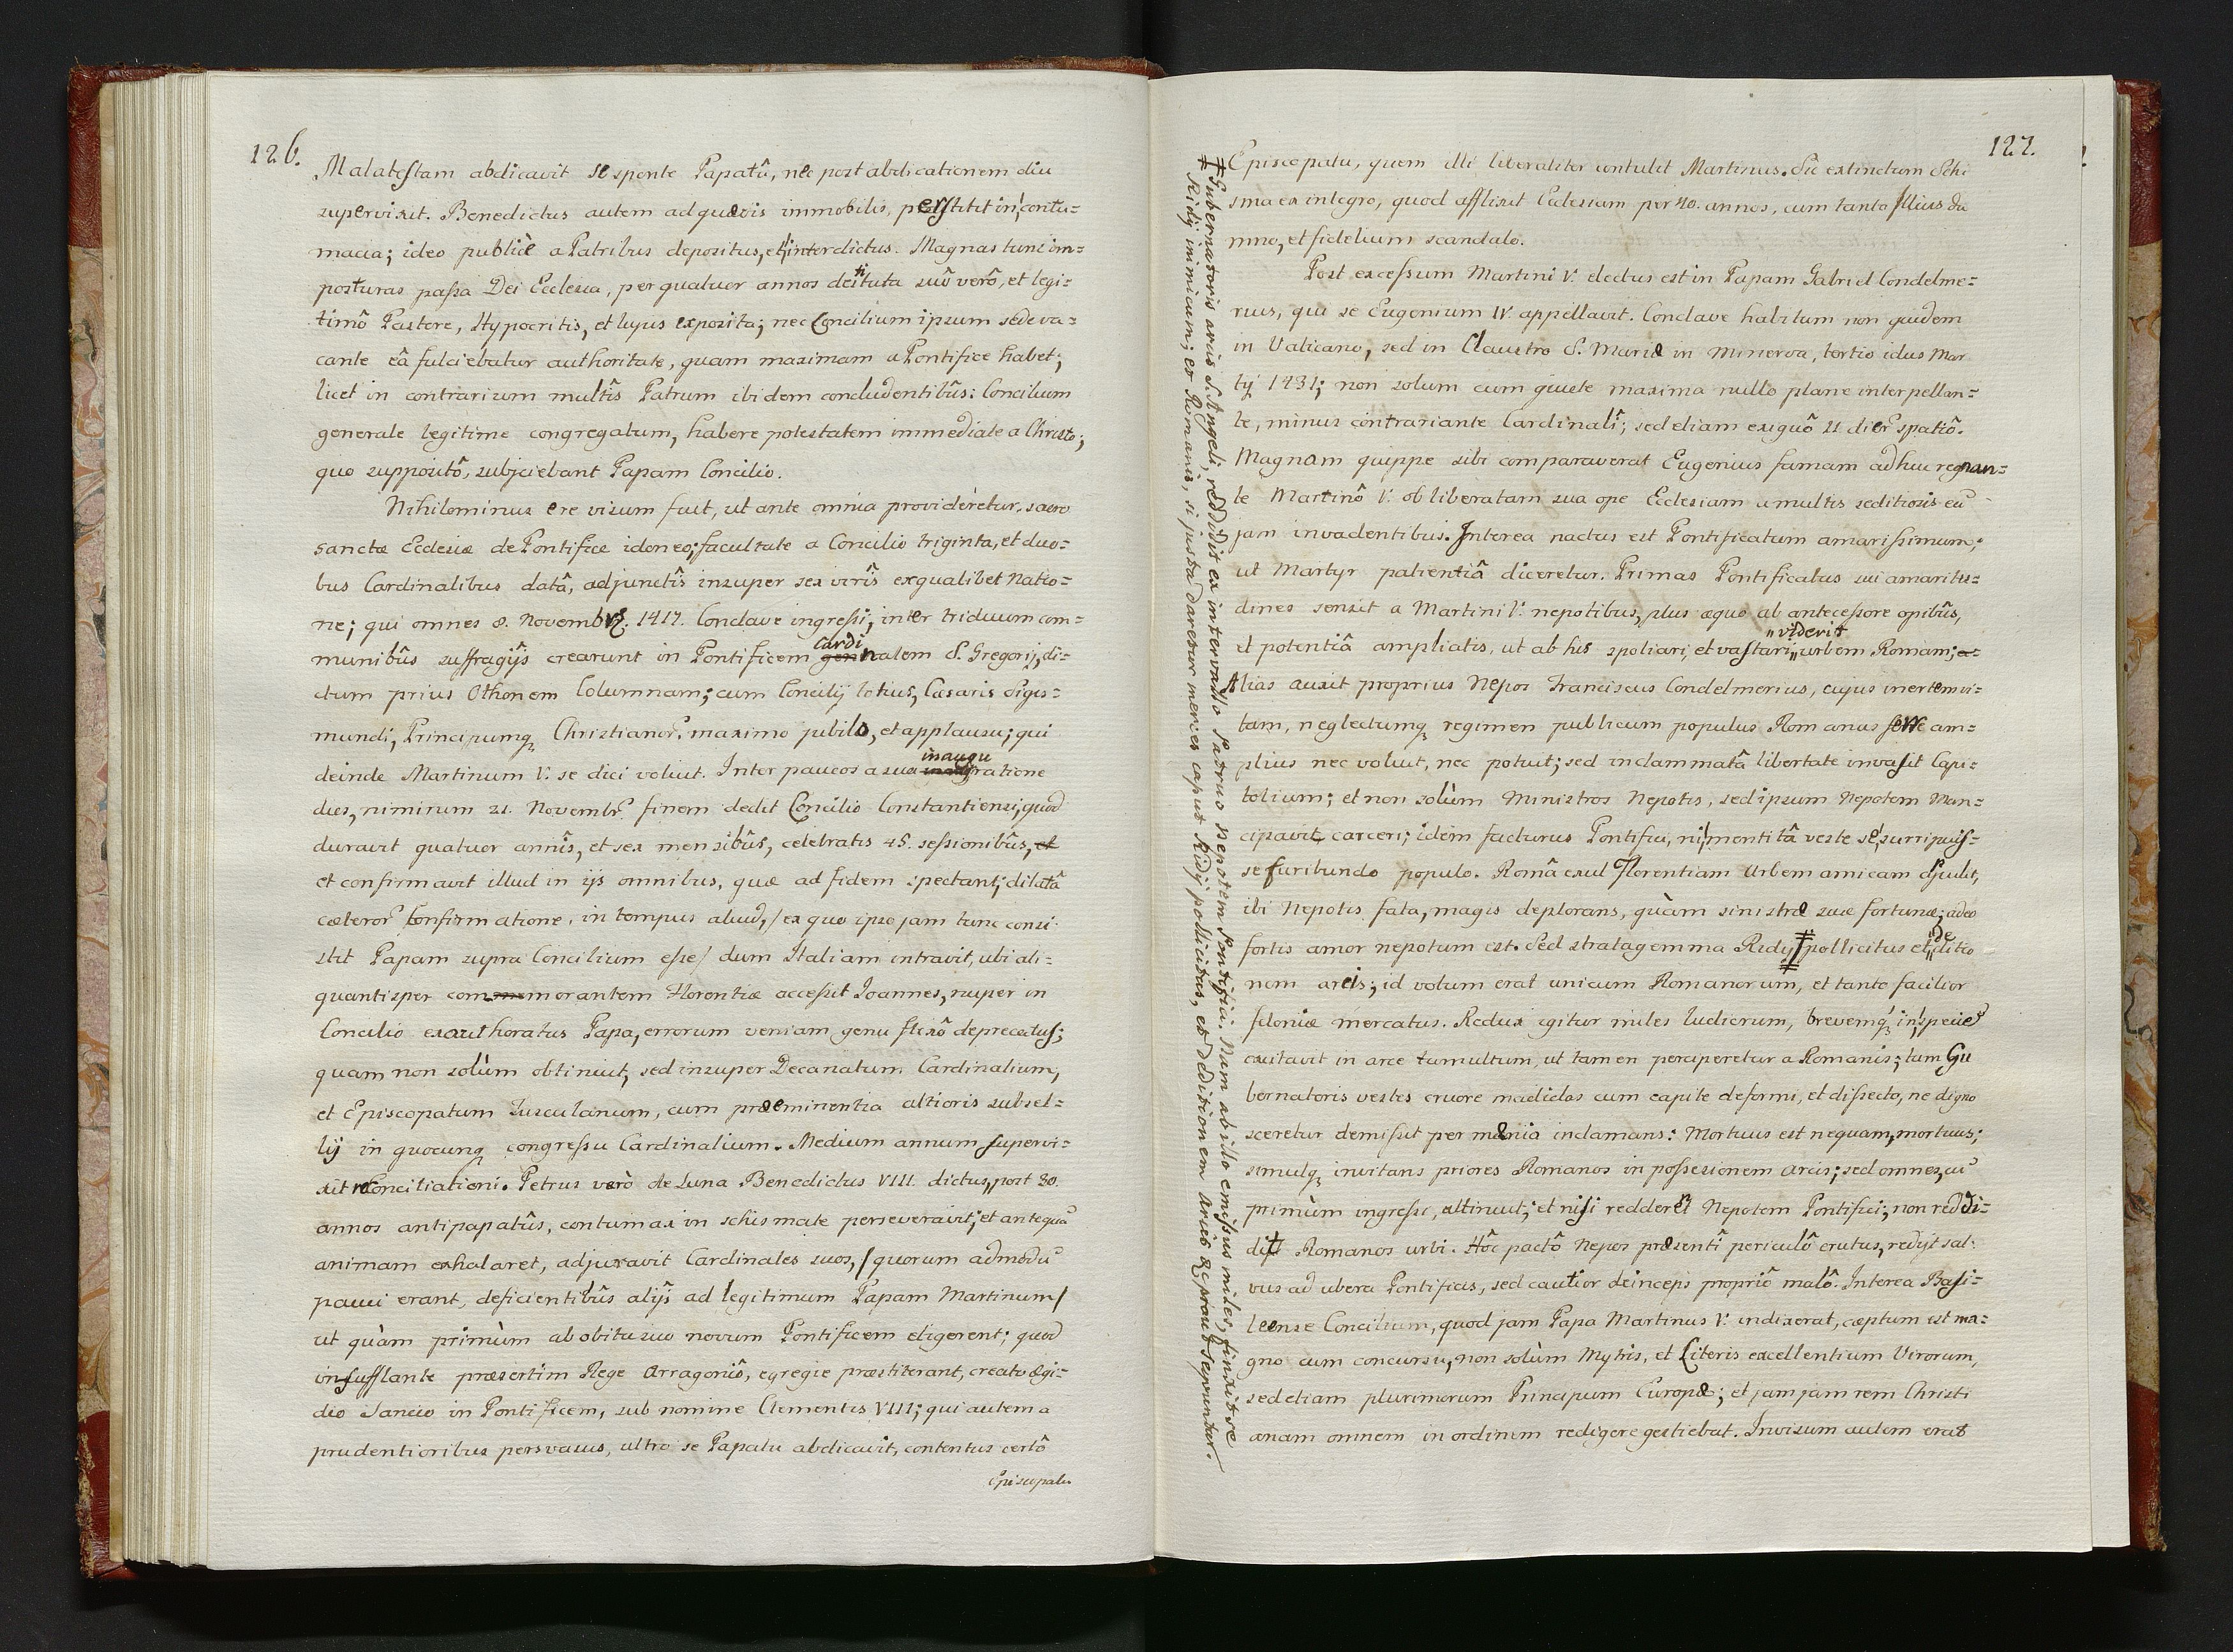 126.
Malatestam abdicavit se sponte Papatû, nec post abdicationem diu
supervixit. Benedictus autem ad quævis immobilis, perstitit in contu=
macia; ideo publicè a Patribus depositus, et interdictus. Magnas tunc im=
posturas passa Dei Ecclesia, per quatuor annos destituta suô verô, et legi=
timô Pastore, Hypocritis, et lupis exposita; nec Concilium ipsum sede va=
cante eâ fulciebatur authoritate, quam maximam a Pontifice habet;
licet in contrarium multîs Patrum ibidem concludentibûs: Concilium
generale legitime congregatum, habere potestatem immediate a Christo;
quo suppositô, subjiciebant Papam Concilio.
Nihilominus e re visum fuit, ut ante omnia provideretur, sacro
sanctæ Ecclesiæ de Pontifice idoneo; facultate a Concilio triginta, et duo=
bus Cardinalibus datâ, adjunctîs insuper sex virîs ex qualibet Natio=
ne; qui omnes 8. Novembr. 1417. Conclave ingressi, inter triduum com=
munibûs suffragijs crearunt in Pontificem Cardinalem S. Gregorij, di=
ctum prius Othonem Columnam; cum Concilij totius, Cæsaris Sigis=
mundi, Principumq Christianor. maximo jubilo, et applausu; qui
deinde Martinum V. se dici voluit. Inter paucos a sua inauguratione
dies, nimirum 21. Novembr. finem dedit Concilio Constantiensi; quod
duravit quatuor annîs, et sex mensibûs, celebratis 45. sessionibûs, et
et confirmavit illud in ijs omnibus, quæ ad fidem spectant; dilatâ
cæteror. Confirmatione, in tempus aliud, /ex quo ipso jam tunc consi=
stit Papam supra Concilium esse/ dum Italiam intravit, ubi ali=
quantisper commorantem Florentiæ accessit Joannes, nuper in
Concilio exauthoratus Papa, errorum veniam genu flexô deprecatus;
quam non solùm obtinuit, sed insuper Decanatum Cardinalium,
et Episcopatum Tusculanum, cum præeminentia altioris subsel=
lij in quocunq congressu Cardinalium. Medium annum supervi=
xit reconciliationi. Petrus verò de Luna Benedictus VIII. dictus, post 30.
annos antipapatûs, contumax in schismate perseveravit; et antequā
animam exhalaret, adjuravit Cardinales suos, /quorum admodū
pauci erant, deficientibûs alijs ad legitimum Papam Martinum/
ut quàm primùm ab obitu suo novum Pontificem eligerent; quod
insufflante præsertim Rege Arragoniæ, egregie præstiterant, creato Ægi=
dio Sancio in Pontificem, sub nomine Clementis VIII; qui autem a
prudentioribus persvasus, ultro se Papatu abdicavit, contentus certô
Episcopatu
127.
Episcopatu, quem illi liberaliter contulit Martinus. Sic extinctum Schi
sma ex integro, quod afflixit Ecclesiam per 40. annos, cum tanto illius da
mno, et fidelium scandalo.
Post excessum Martini V. electus est in Papam Gabriel Condelme=
rius, qui se Eugenium IV appellavit. Conclave habitum non quidem
in Vaticano, sed in Claustro S. Mariæ in Minerva, tertio idus Mar
tij 1431; non solum cum quiete maxima nullo plane interpellan=
te, minus contrariante Cardinali; sed etiam exiguô 11 dier. spatiô.
Magnam quippe sibi comparaverat Eugenius famam adhuc regnan=
te Martinô V. ob liberatam sua ope Ecclesiam a multis seditiosis eū
jam invadentibus. Interea nactus est Pontificatum amarissimum;
ut Martyr patientiâ diceretur. Primas Pontificatus sui amaritu=
dines sensit a Martini V. nepotibus, plus æquo ab antecessore opibûs,
et potentiâ ampliatis, ut ab his spoliari, et vastari viderit urbem Romam; a=
Alias auxit proprius Nepos Franciscus Condelmerius, cujus inertem vi=
tam, neglectumq regimen publicum populus Romanus ferre am=
plius nec voluit, nec potuit; sed inclammatâ libertate invasit Capi=
tolium; et non solùm Ministros Nepotis, sed ipsum Nepotem Man=
cipavit carceri; idem facturus Pontifici, ni mentitâ veste se surripuis=
se furibundo populo. Româ exul Florentiam Urbem amicam appulit,
ibi Nepotis fata, magis deplorans, quàm sinistræ suæ fortunæ; adeo
fortis amor nepotum est. Sed stratagemma Ridij ǂ pollicitus et deditio
nem arcis; id votum erat unicum Romanorum, et tanto facilior
feloniæ mercatus. Redux igitur miles ludicrum, brevemq in specie
excitavit in arce tumultum, ut tamen perciperetur a Romanis; tum Gu
bernatoris vestes cruore madidas cum capite deformi, et dissecto, ne digno
sceretur demissit per mænia inclamans: Mortuus est nequam, mortuus;
simulq invitans priores Romanos in possesionem arcis; sed omnes, cū
primùm ingressi, attinuit; et nisi redderēt Nepotem Pontifici; non reddi=
dit Romanos urbi. Hôc pactô Nepos præsentî periculô erutus, redijt sal=
vus ad ubera Pontificis, sed cautior deinceps propriô malô. Interea Basi=
leense Concilium, quod jam Papa Martinus V. indixerat, cæptum est ma=
gno cum concursu, non solùm Mytris, et Literis excellentium Virorum,
sed etiam plurimorum Principum Europæ; et jam jam rem Christi
anam omnem in ordinem redigere gestiebat. Invisum autem erat
ǂ Gubernatoris arcis S. Angeli, reddidit ex intervallo Patrus Nepotem Pontifici. Nam ab illo emissus miles, finxit se
Ridij inimicum; et Romanis, si justa daretur merces caput Ridij pollicitus, et deditionem arcis &c prout sequuntur.